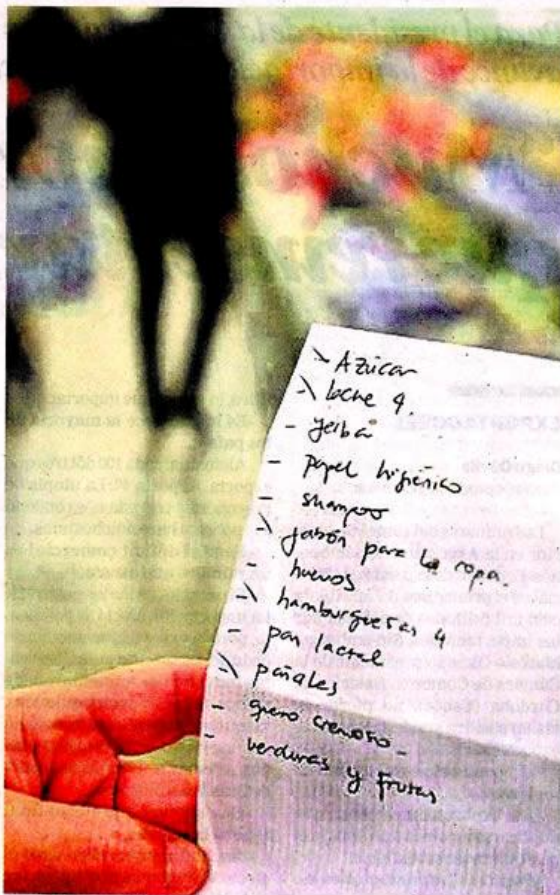 \ Azúcar
\ leche 4
- yerba
- papel higiénico
- shampoo
\ jabón para la ropa
- huevos
\ hamburguesas 4
- pan lactal
\ pañales
- queso cremoso -
- verduras y frutas